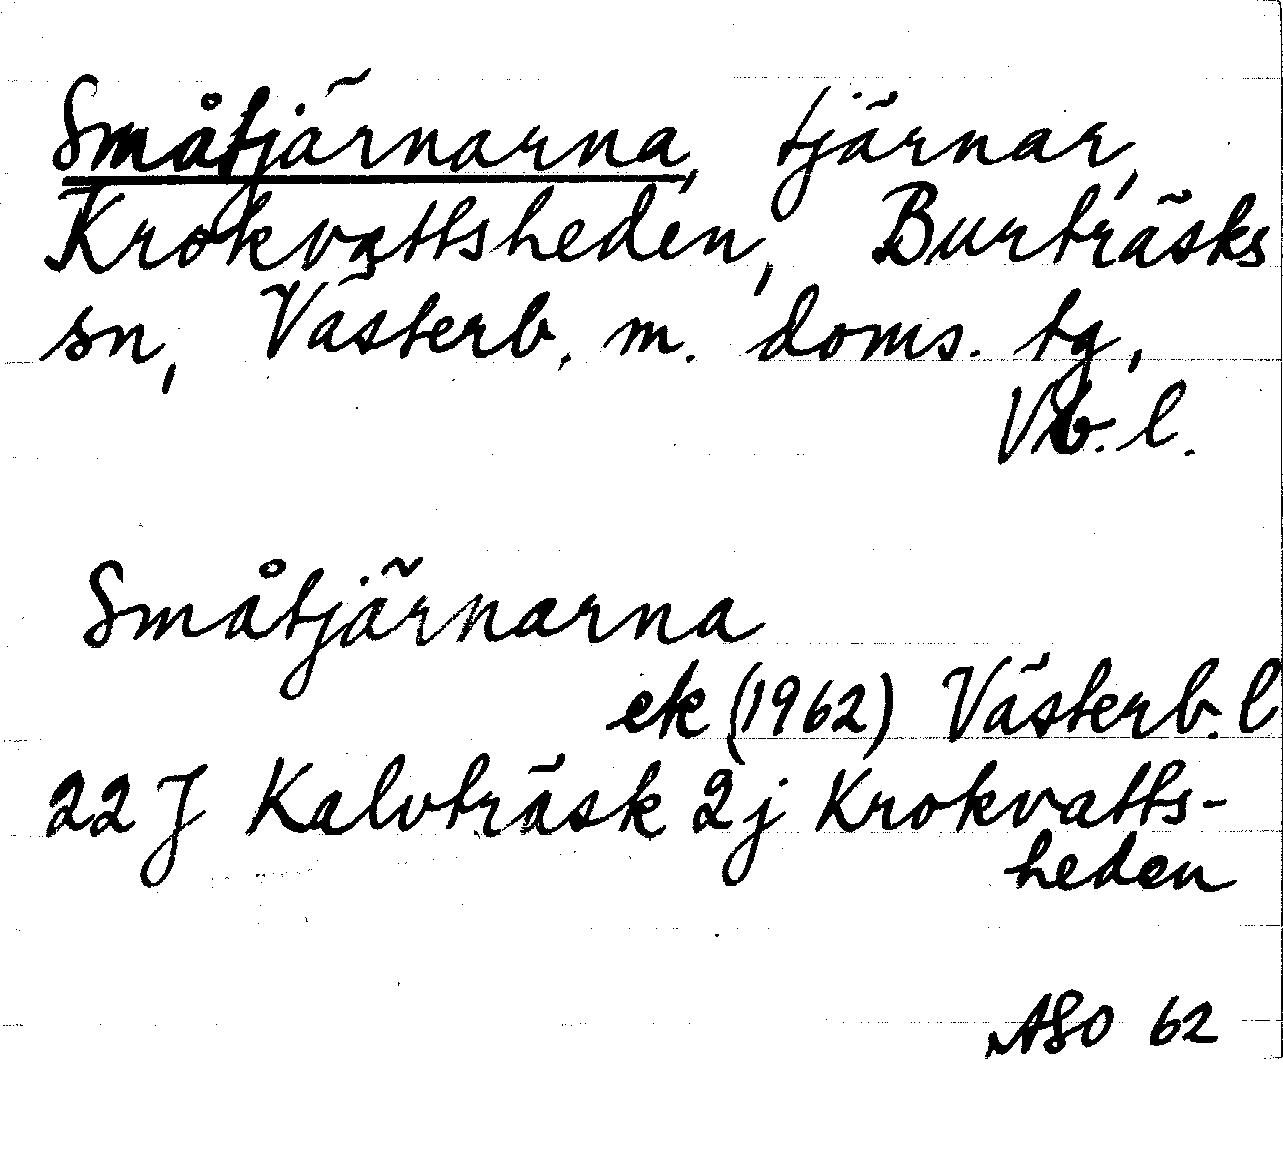 Småtjärnarna, tjärnar,
Krokvattsheden, Burträsks
sn, Västerb. m. doms. tg,
Vb. l.
Småtjärnarna
ek (1962) Västerb. l
22 J Kalvträsk 2j Krokvatts-
heden
ASO 62